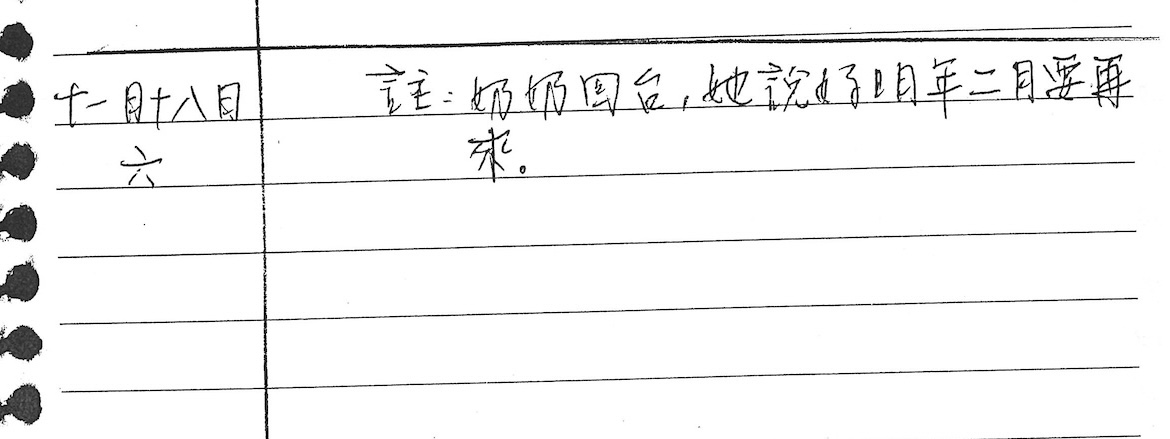 十一月十八日
六
註：奶奶回台，她說好明年二月要再
來。